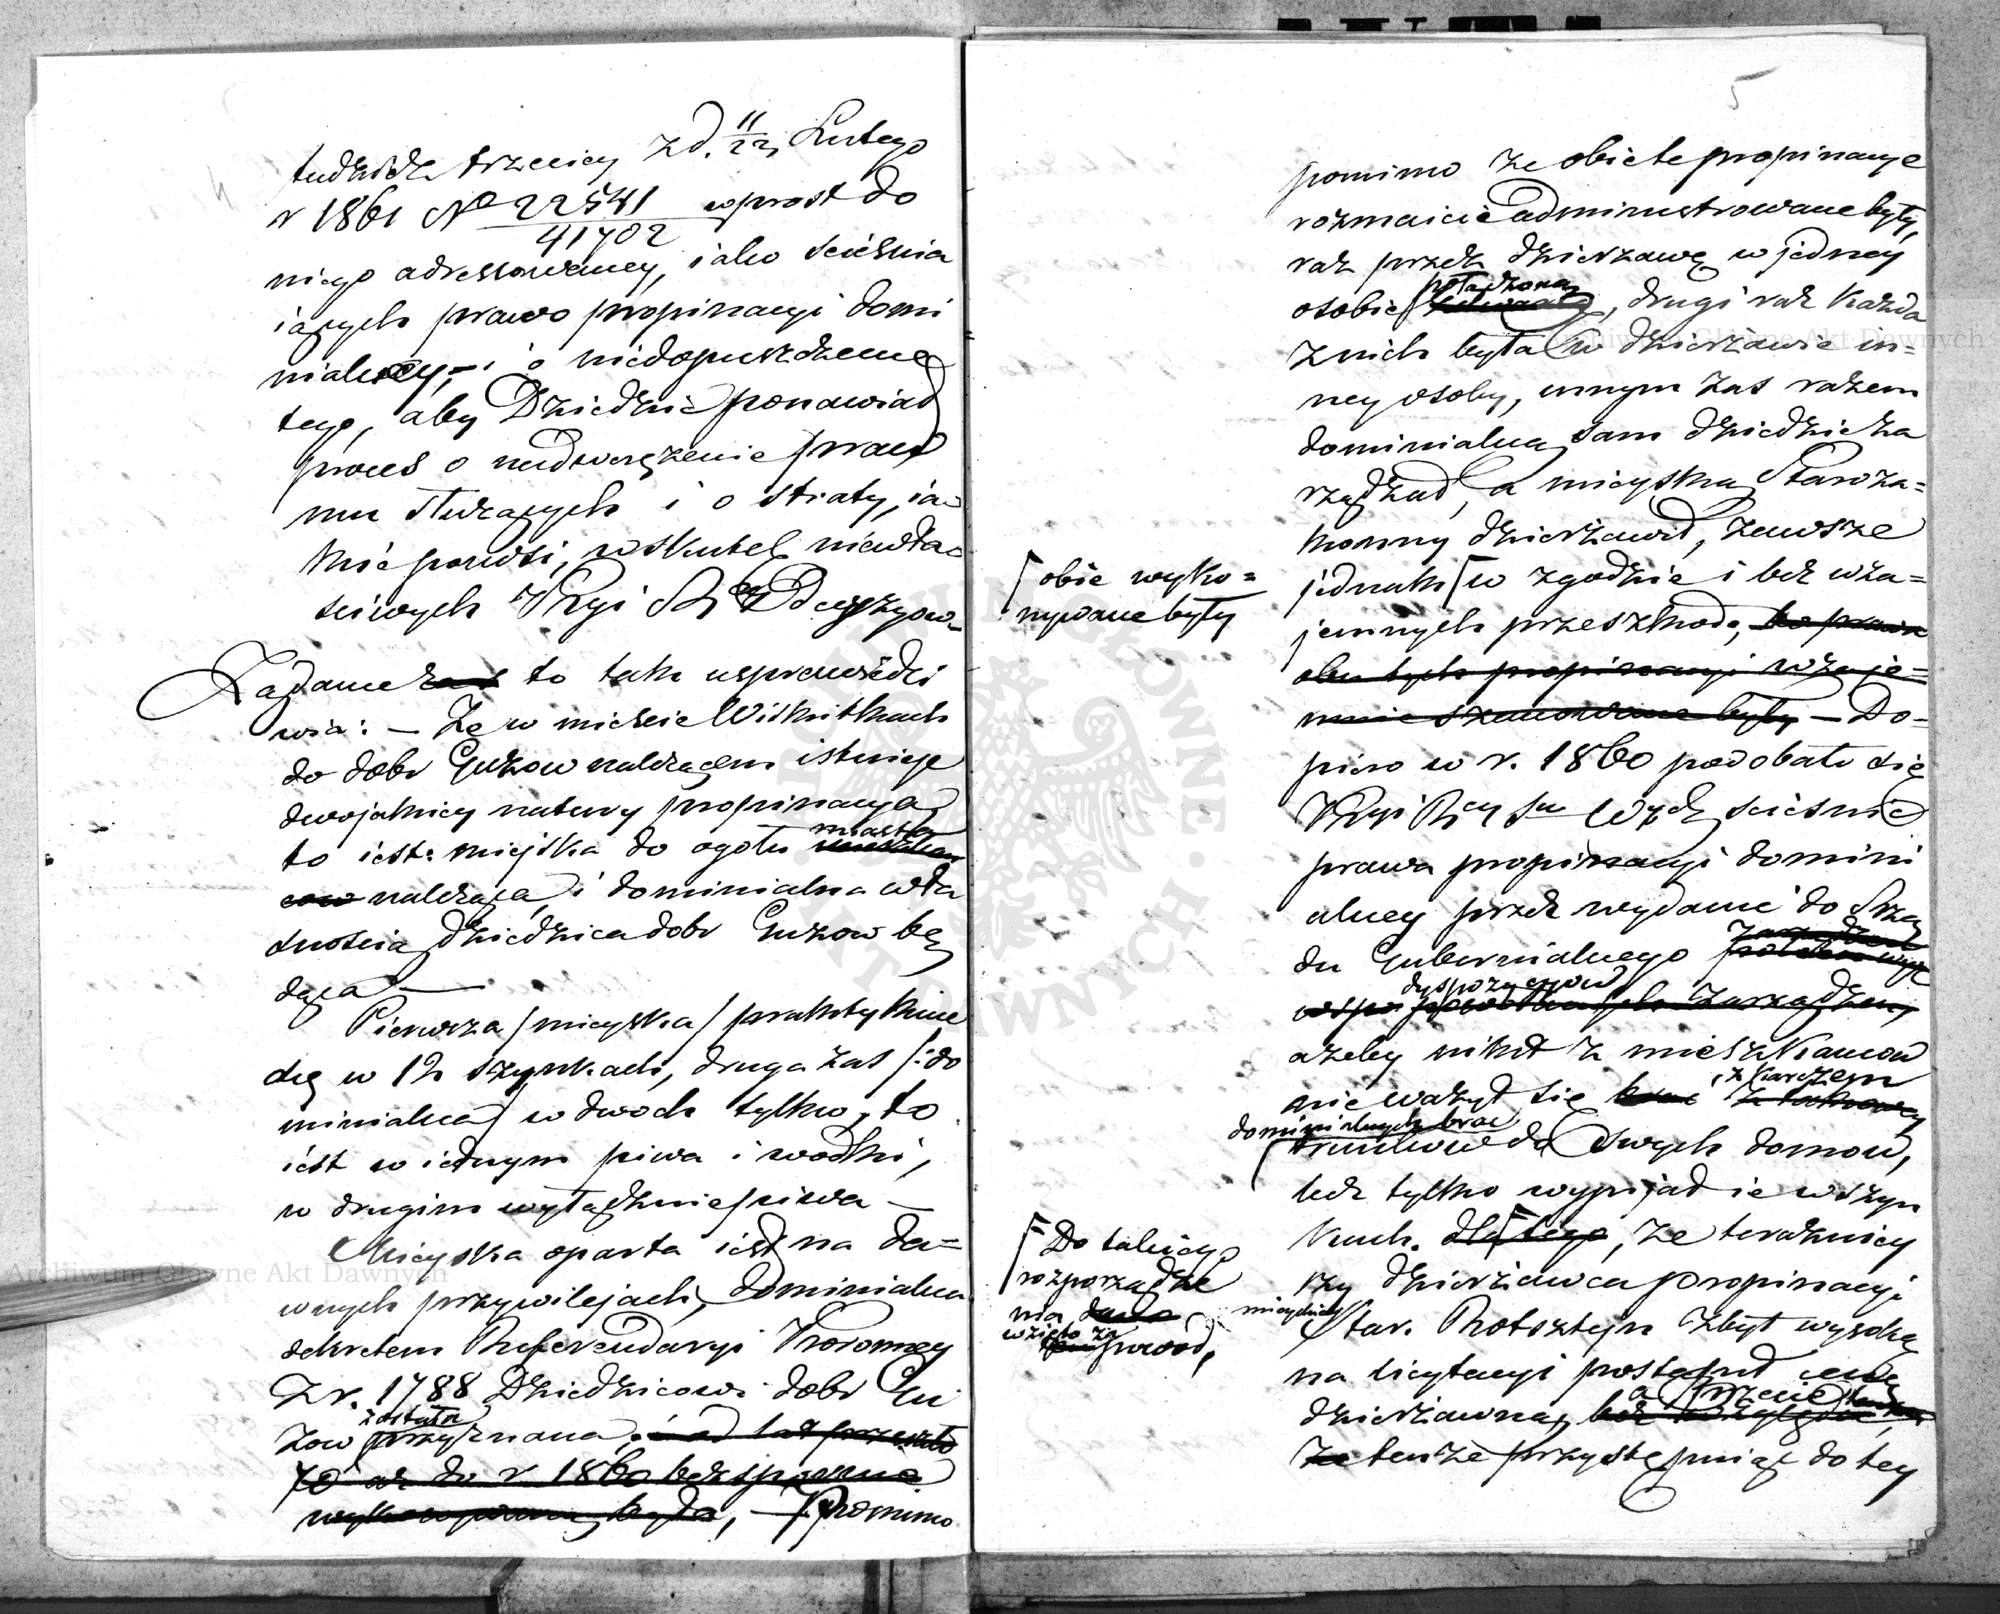 tudzież trzeciey z d. 11/23 Lutego
r 1861 No 22541/41702 wprost do
niego adressowaney, iako scieśnia
iących prawo propinacyi domi
nialney, – i o niedopuszczenie
tego, aby Dziedzic ponawiał
proces o nadwerężenie praw
mu służących i o straty, ia-
kie poniósł, wskutek niewła-
sciwych Decyzyow.
Żądanie to tak usprawiedli
wia: – Że w mieście Wiskitkach
do dobr Guzow należącem istnieje
dwojakiey natury propinacya
to iest: miejska do ogołu miasta
należąca, i dominialna wła
snością dziedzica dobr Guzow bę
dąca –
Pierwsza /mieyska/ praktykuie
się w 12 szynkach, druga zas /: do
minialna/ w dwoch tylko, to
iest w iednym piwa i wodki,
w drugim wyłącznie piwa –
Mieyska oparta iest na da-
wnych przywilejach, dominialna
dekretem Referendaryi Koronney
z r. 1788 Dziedzicowi dobr Gu
zow przyznana została, i od lat przeszło
70 aż do r 1860 bezspornie
wykonywaną była, – Pomimo
5
pomimo że obie te propinacye
rozmaicie administrowane były,
raz przez dzierzawę w jedney
osobie połączoną, drugi raz każda
z nich była w dzierżawie in-
ney osoby, innym zas razem
dominialną sam dziedzic za
rządzał, a mieyską Staroza-
konny dzierżawił, zawsze
jednak w zgodzie i bez wza-
jemnych przeszkod, bo prawa
obu tych propinacyi wzaje-
mnie szanowane były – Do-
piero w r. 1860 podobało się
scieśnić
prawa propinacyi domini
alney przez wydanie do Rzą
du Gubernialnego
dyspozycyow
ażeby nikt z mieszkancow
nie ważył się z karczem
dominialnych brac
trunkow do swych domow,
lecz tylko wypijał ie w szyn
kach. dla tego, że teraźniey
szy dzierżawca propinacyi
mieyskiey Star. Rotsztejn zbyt wysoką
na licytacyi postąpił cenę
dzierżawną,
tenże przystępując do tey
obie wyko-
nywane były
Do takiego
rozporządze
nia
wzięto za
powod,